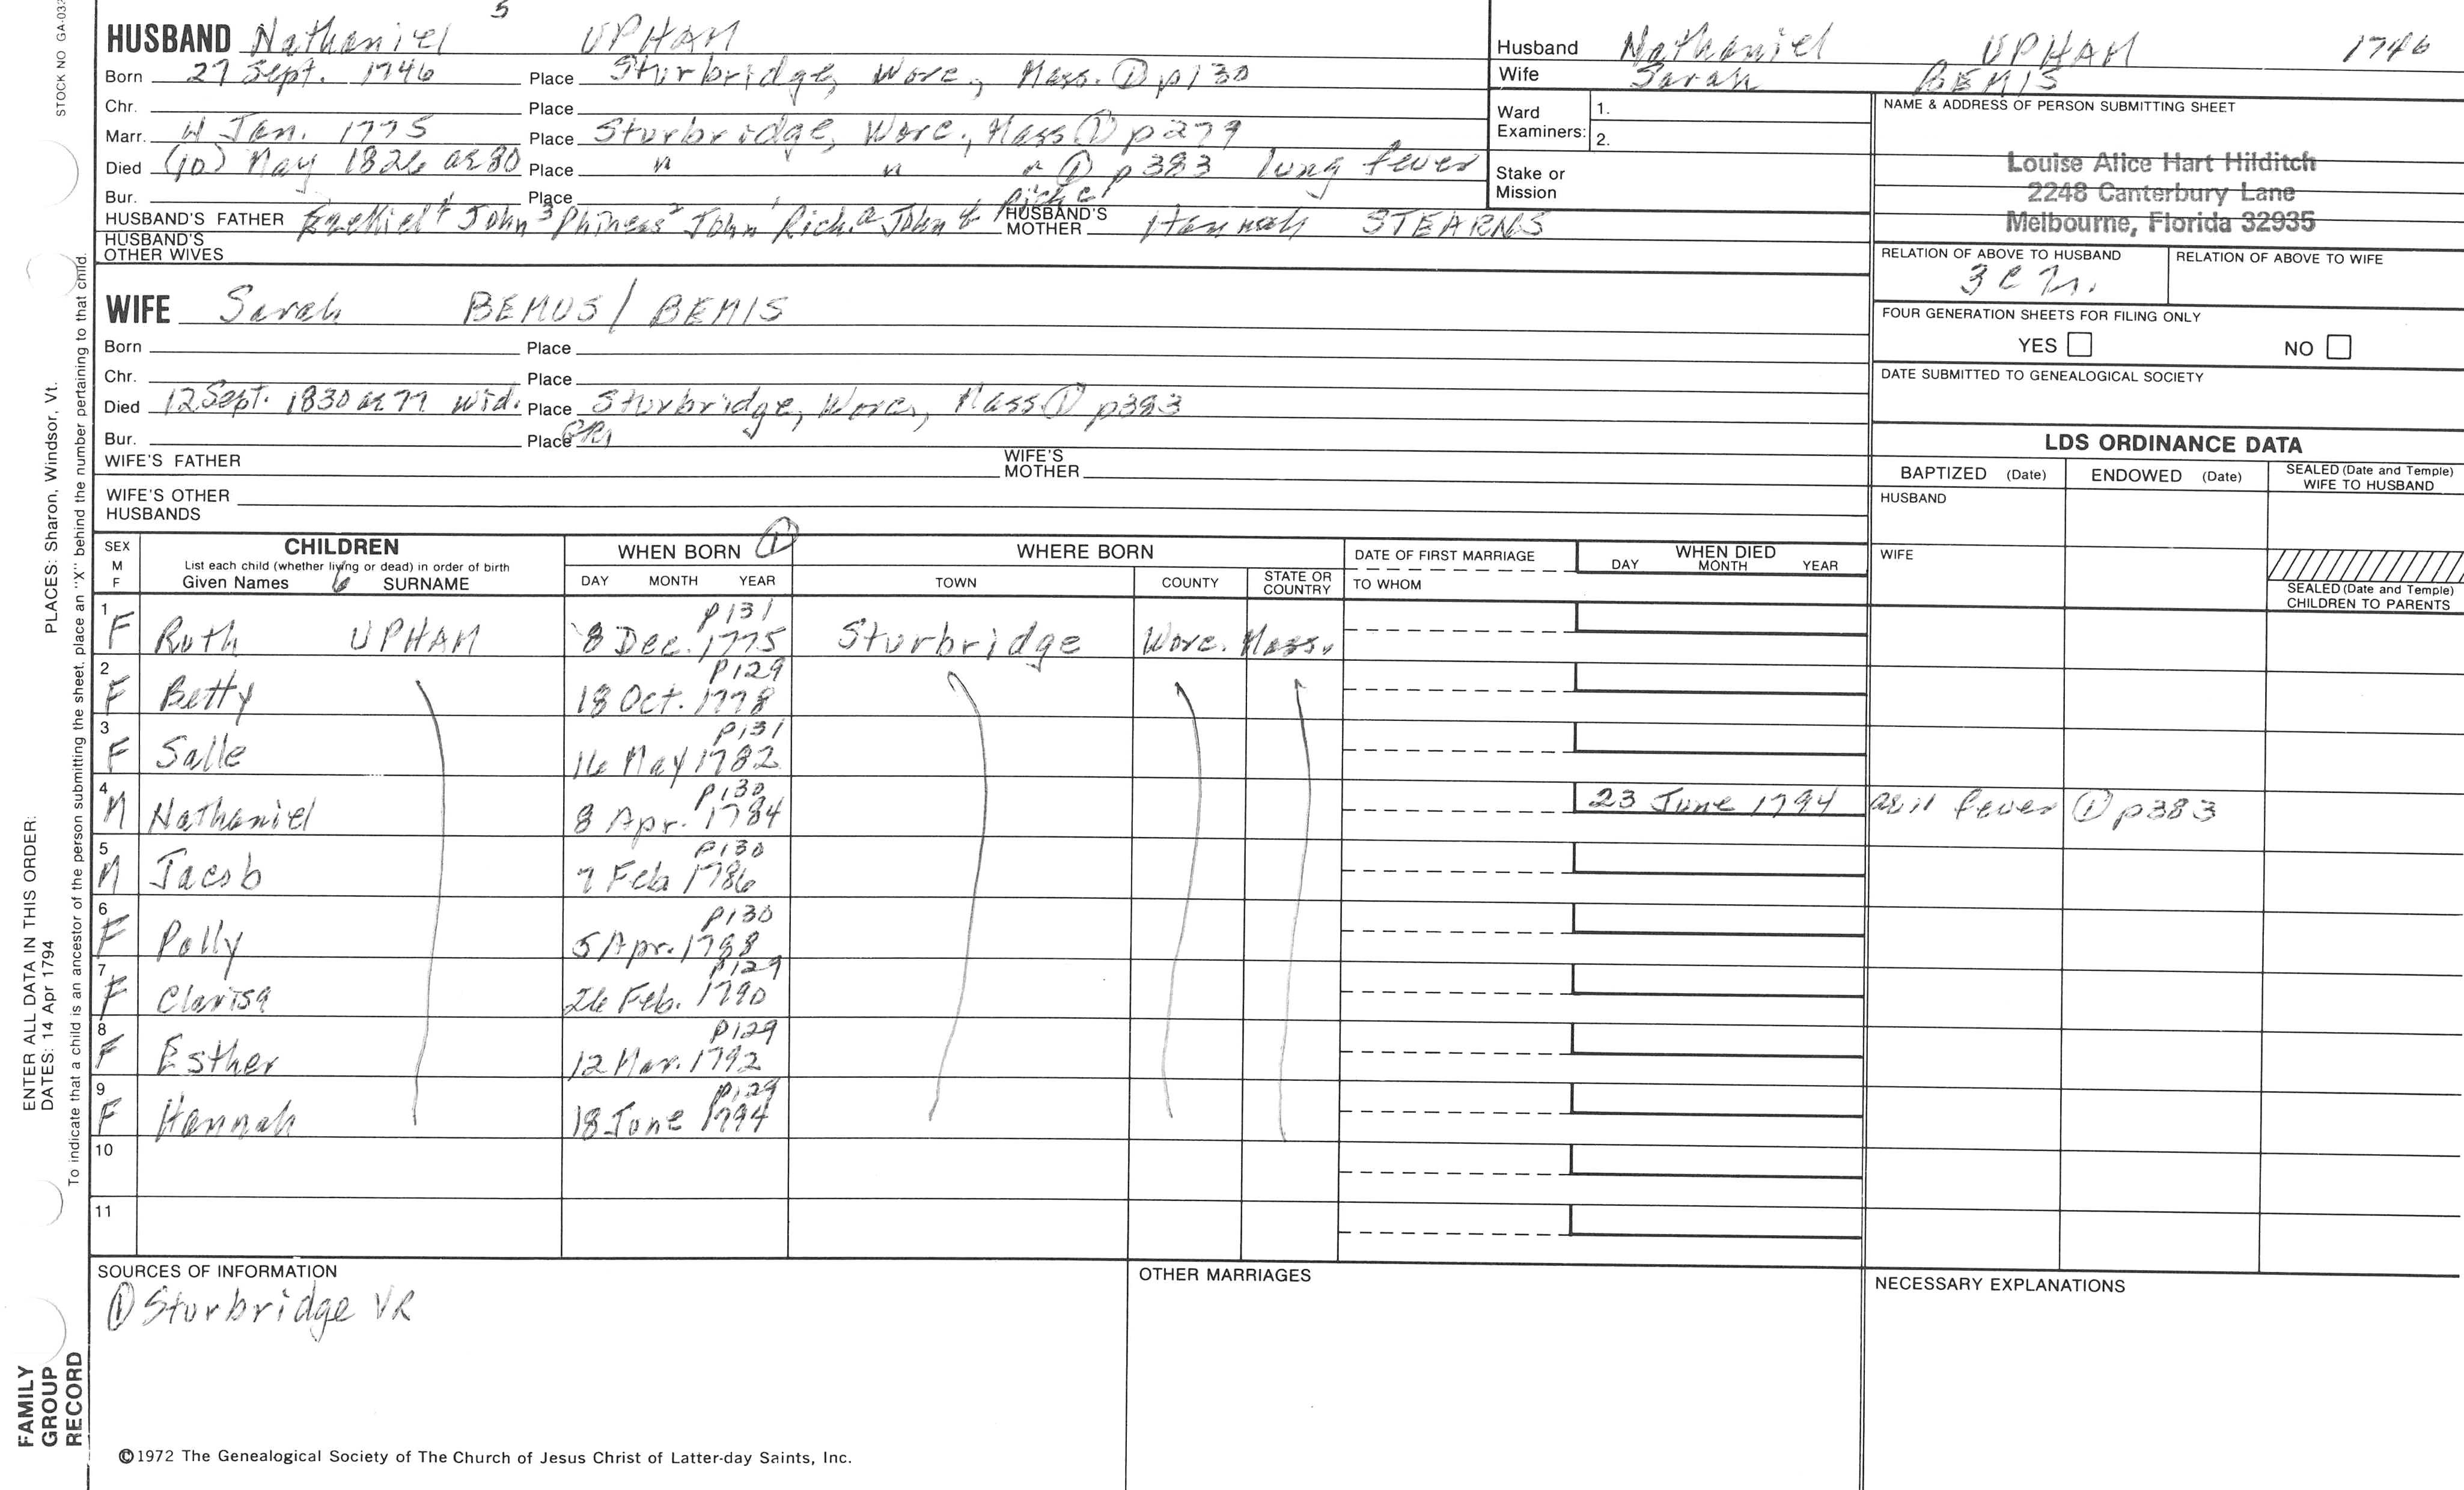 5
HUSBAND Nathaniel UPHAM
Born 27 Sept. 1746 Place Sturbridge, Worc., Mass. ① p130
Chr. Place
Marr. 4 Jan. 1775 Place Sturbridge, Worc., Mass ① p279
Died (10) May 1826 ae 80 Place " " " ① p383 lung fever
Bur. Place
HUSBAND'S FATHER Ezekiel⁴ John³ Phineas² John¹ Rich.ᵃ John ᵇ Rich ᶜ HUSBAND'S MOTHER Hannah STEARNS
HUSBAND'S OTHER WIVES
WIFE Sarah BEMUS / BEMIS
Born Place
Chr. Place
Died 12 Sept. 1830 ae 77 Wid. Place Sturbridge, Worc, Mass ① p383
Bur. Place GR1
WIFE'S FATHER WIFE'S MOTHER
WIFE'S OTHER HUSBANDS
Husband Nathaniel UPHAM 1746
Wife Sarah BEMIS
Ward Examiners: 1.
2.
Stake or Mission
NAME & ADDRESS OF PERSON SUBMITTING SHEET
Louise Alice Hart Hilditch
2248 Canterbury Lane
Melbourne, Florida 32935
RELATION OF ABOVE TO HUSBAND RELATION OF ABOVE TO WIFE
FOUR GENERATION SHEETS FOR FILING ONLY
YES NO
DATE SUBMITTED TO GENEALOGICAL SOCIETY
LDS ORDINANCE DATA
BAPTIZED (Date) ENDOWED (Date) SEALED (Date and Temple) WIFE TO HUSBAND
HUSBAND
WIFE
SEALED (Date and Temple) CHILDREN TO PARENTS
SEX M F CHILDREN WHEN BORN ① WHERE BORN DATE OF FIRST MARRIAGE WHEN DIED
List each child (whether living or dead) in order of birth
Given Names 6 SURNAME DAY MONTH YEAR TOWN COUNTY STATE OR COUNTRY TO WHOM DAY MONTH YEAR
p131
1 F Ruth UPHAM 8 Dec. 1775 Sturbridge Worc. Mass.
p129
2 F Betty 18 Oct. 1778
p131
3 F Salle 16 May 1782
p130
4 M Nathaniel 8 Apr. 1784 23 June 1794 ae 11 fever ① p383
p130
5 M Jacob 7 Feb 1786
p130
6 F Polly 5 Apr. 1788
p129
7 F Clarisa 26 Feb. 1790
p129
8 F Esther 12 Mar. 1792
p129
9 F Hannah 18 June 1794
10
11
SOURCES OF INFORMATION OTHER MARRIAGES NECESSARY EXPLANATIONS
① Sturbridge VR
©1972 The Genealogical Society of The Church of Jesus Christ of Latter-day Saints, Inc.
STOCK NO GA-033
PLACES: Sharon, Windsor, Vt.
ENTER ALL DATA IN THIS ORDER:
DATES: 14 Apr 1794
To indicate that a child is an ancestor of the person submitting the sheet, place an "X" behind the number pertaining to that child.
FAMILY
GROUP
RECORD